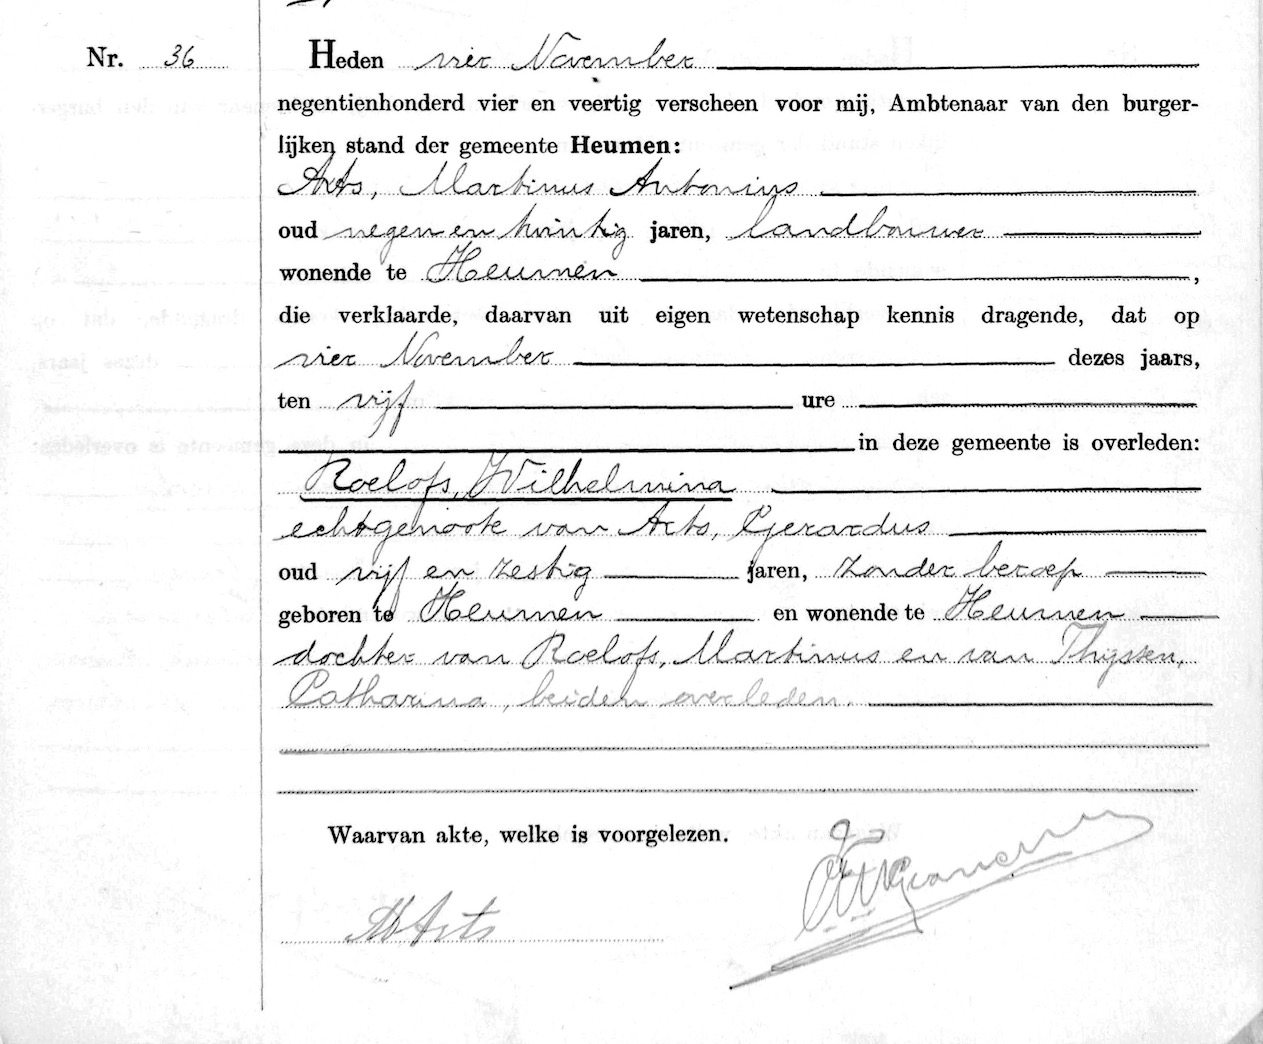 Nr. 36
Heden vier November
negentienhonderd vier en veertig verscheen voor mij, Ambtenaar van den burger-
lijken stand der gemeente Heumen:
Arts, Martinus Antonius
oud negen en twintig jaren, landbouwer
wonende te Heumen,
die verklaarde, daarvan uit eigen wetenschap kennis dragende, dat op
vier November dezes jaars,
ten vijf ure
in deze gemeente is overleden:
Roelofs, Wilhelmina
echtgenoote van Arts, Gerardus
oud vijf en zestig jaren, zonder beroep
geboren te Heumen en wonende te Heumen
dochter van Roelofs, Martinus en van Thijssen,
Catharina, beiden overleden.
Waarvan akte, welke is voorgelezen.
MArts